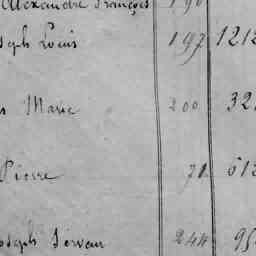 Alexandre François 190
Joseph Louis 197 1212
Marie 200 32
Pierre 71 512
Joseph 244 95